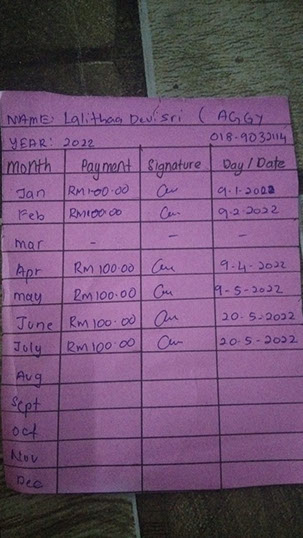 NAME: Lalithaa Devi Sri ( AGGY
YEAR: 2022 018-9032114
Month Payment Signature Day / Date
Jan RM100.00 9-1-2022
Feb RM100.00 9-2-2022
Mar - - -
Apr RM 100.00 9-4-2022
may RM 100.00 9-5-2022
June RM 100.00 20-5-2022
July RM 100.00 20-5-2022
Aug
Sept
Oct
Nov
Dec